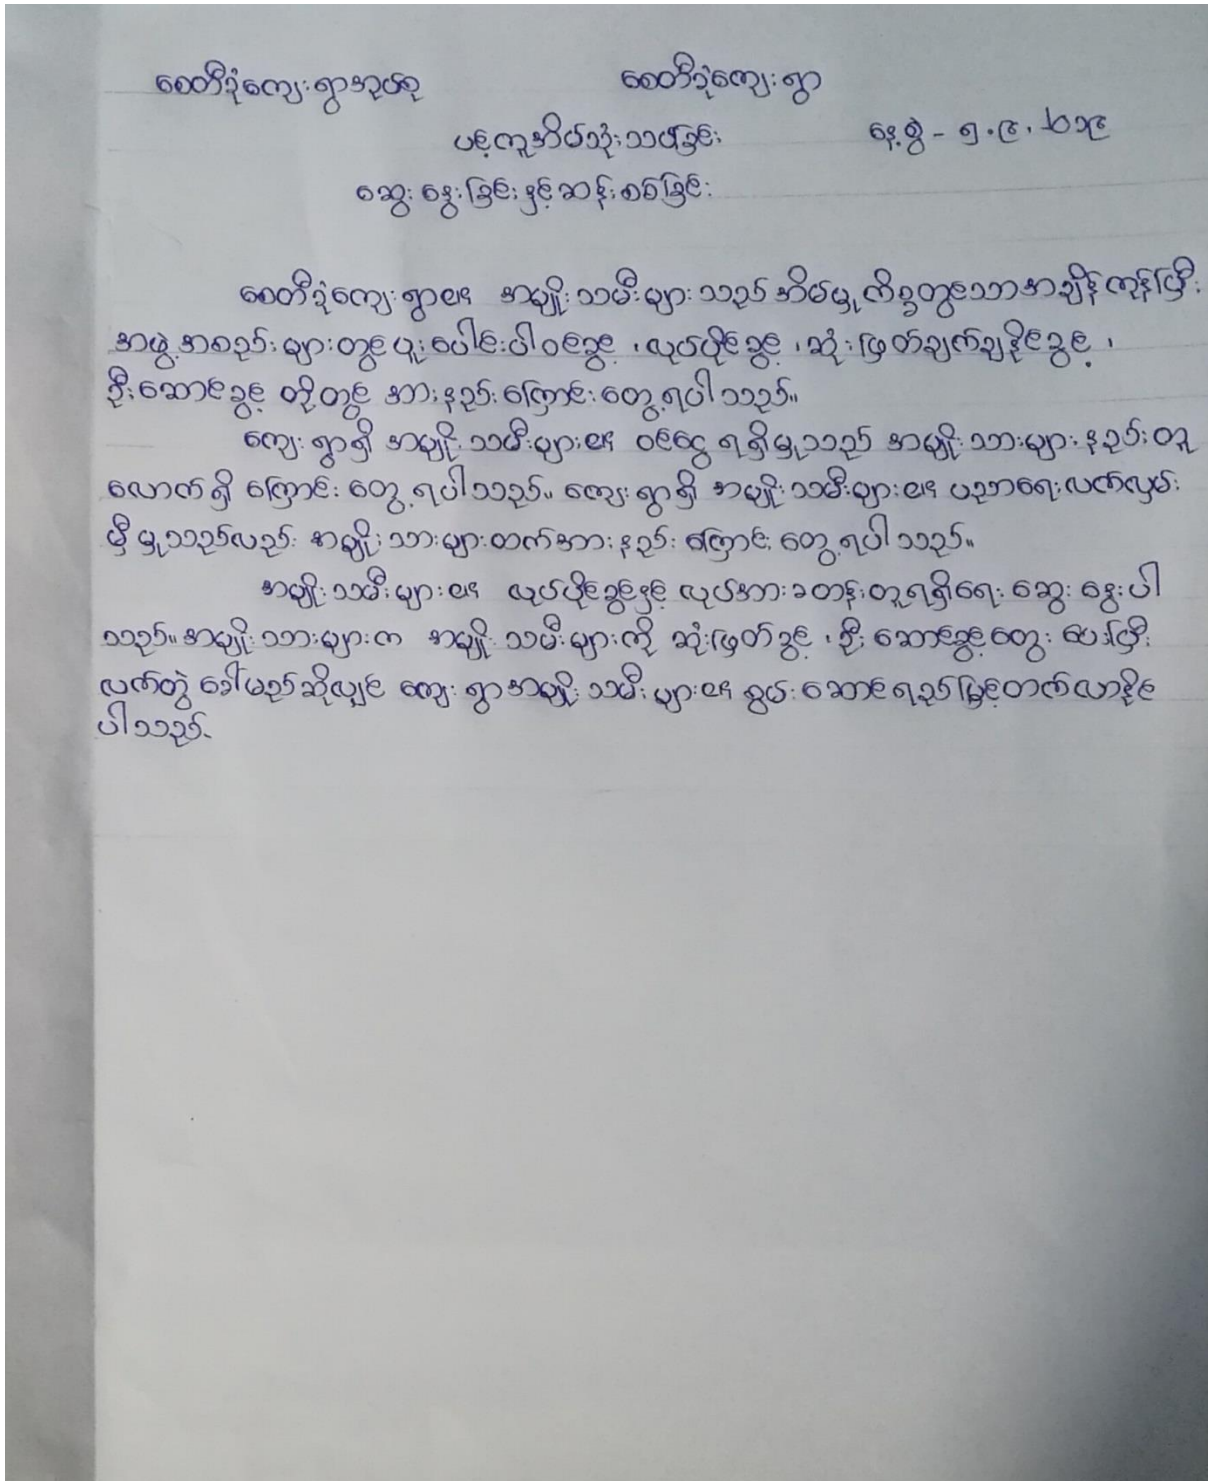 စေတီဒုံကျေးရွာအုပ်စု စေတီဒုံကျေးရွာ
ပင့်ကူအိမ်သုံးသပ်ခြင်း နေ့စွဲ - ၅.၉.၂၁၉
ဆွေးနွေးခြင်းနှင့်ဆန်းစစ်ခြင်း
စေတီဒုံကျေးရွာ၏ အမျိုးသမီးများသည် အိမ်မှုကိစ္စတွင်သာအချိန်ကုန်ပြီး
အဖွဲ့အစည်းများတွင်ပူးပေါင်းပါဝင်ခွင့်၊ လုပ်ပိုင်ခွင့်၊ ဆုံးဖြတ်ချက်ချနိုင်ခွင့်၊
ဦးဆောင်ခွင့် တို့တွင် အားနည်းကြောင်းတွေ့ရပါသည်။
ကျေးရွာရှိ အမျိုးသမီးများ၏ ဝင်ငွေရရှိမှုသည် အမျိုးသားများနည်းတူ
လောက်ရှိကြောင်းတွေ့ရပါသည်။ ကျေးရွာရှိ အမျိုးသမီးများ၏ ပညာရေးလက်လှမ်း
မှီမှုသည်လည်း အမျိုးသားများထက်အားနည်းကြောင်းတွေ့ရပါသည်။
အမျိုးသမီးများ၏ လုပ်ပိုင်ခွင့်နှင့် လုပ်အားခတန်းတူရရှိရေးဆွေးနွေးပါ
သည်။ အမျိုးသားများက အမျိုးသမီးများကို ဆုံးဖြတ်ခွင့်၊ ဦးဆောင်ခွင့်တွေးပေးပြီး
လက်တွဲခေါ်မည်ဆိုလျှင် ကျေးရွာအမျိုးသမီးများ၏ စွမ်းဆောင်ရည်မြှင့်တက်လာနိုင်
ပါသည်။